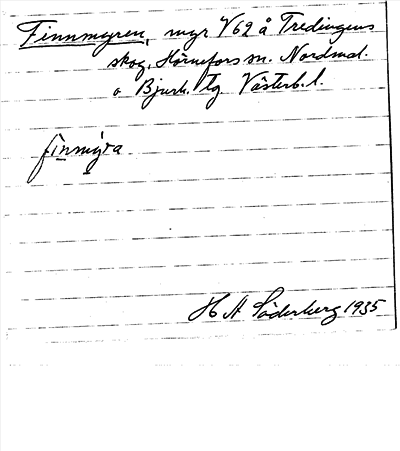 Finnmyren, myr V62 å Tredingens
skog, Hörnefors sn. Nordmal.
o Bjurh. tg Västerb. l.
finmýra.
H A Söderberg 1935